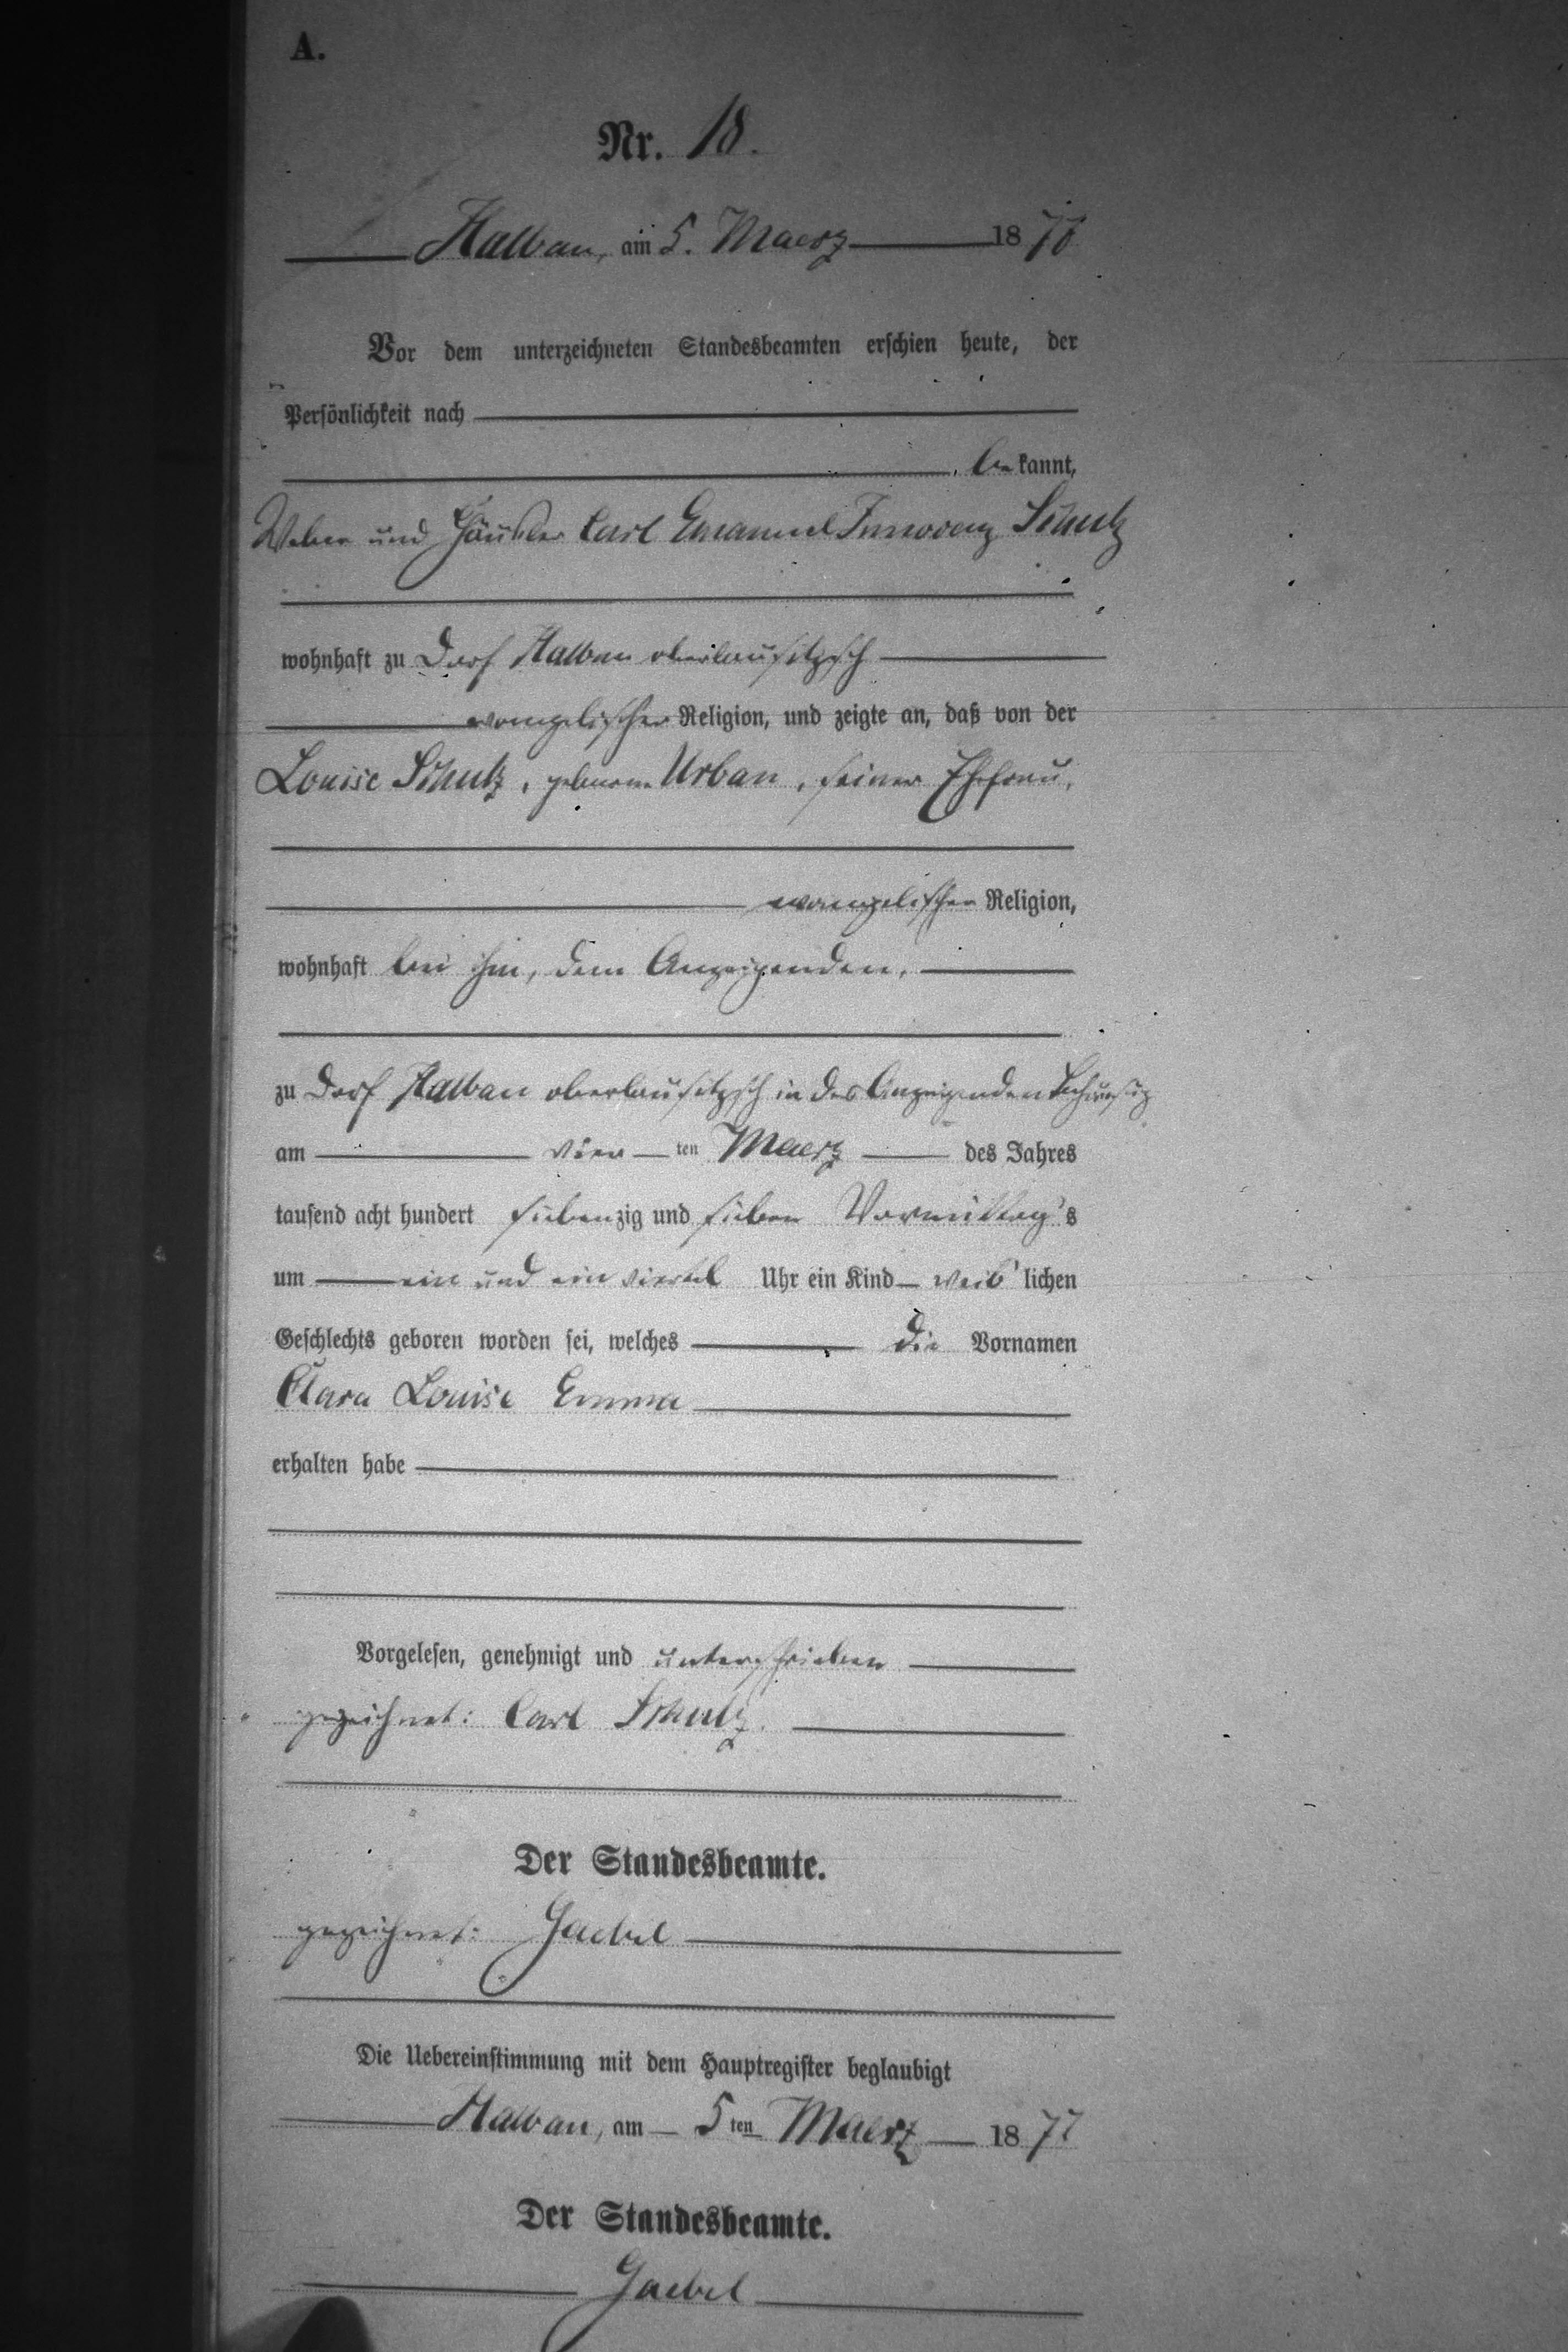 A.
Nr. 18.
Halbau, am 5. Maerz 1877
Vor dem unterzeichneten Standesbeamten erschien heute, der
Persönlichkeit nach
bekannt,
Weber und Häusler Carl Emanuel Schulz
wohnhaft zu Dorf Halbau oberlausitzsch
evangelischer Religion, und zeigte an, daß von der
Louise Schulz, geborene Urban, seiner Ehefrau,
evangelischer Religion,
wohnhaft bei ihm, dem Anzeigenden,
zu Dorf Halbau oberlausitzsch in des Anzeigenden
am vierten Maerz des Jahres
tausend acht hundert siebenzig und sieben Vormittags
um ein und ein viertel Uhr ein Kind weiblichen
Geschlechts geboren worden sei, welches die Vornamen
Clara Louise Emma
erhalten habe
Vorgelesen, genehmigt und unterschrieben
gezeichnet: Carl Schulz.
Der Standesbeamte.
gezeichnet: Gaebel
Die Uebereinstimmung mit dem Hauptregister beglaubigt
Halbau, am 5ten Maerz 1877
Der Standesbeamte.
Gaebel